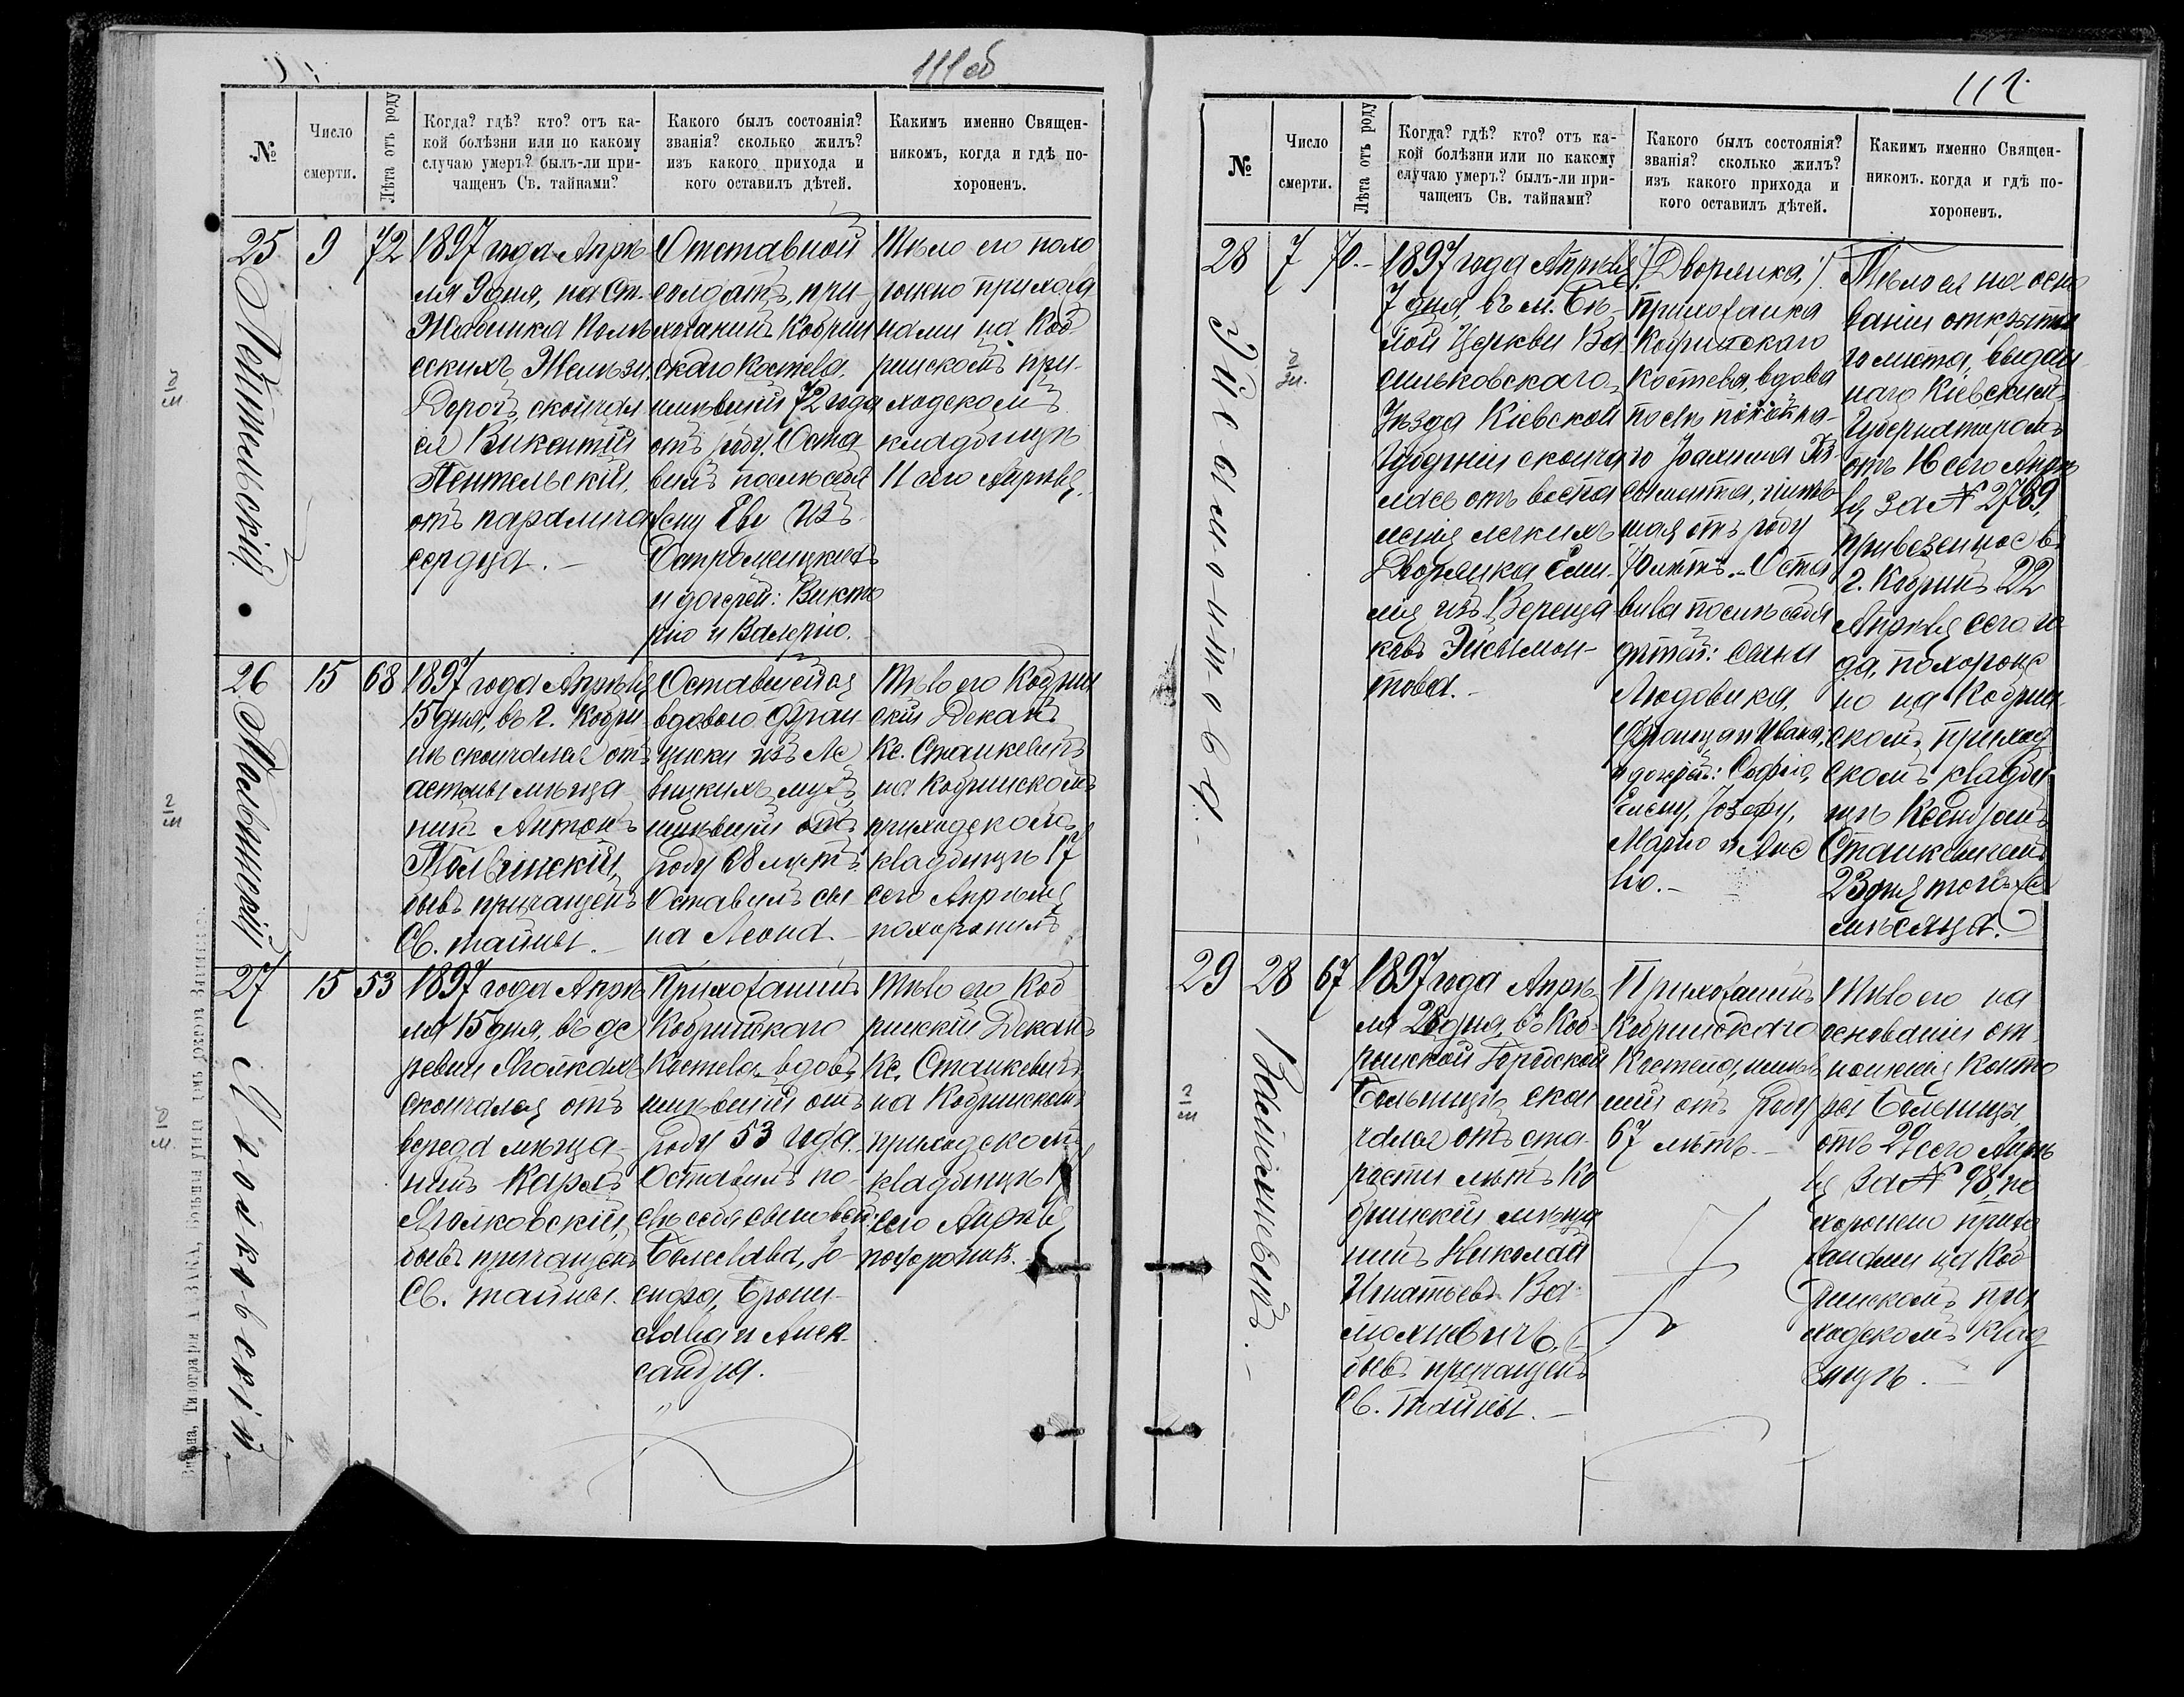 111 об
№
Число
смерти.
Лѣта отъ роду
Когда? гдѣ? кто? отъ ка-
кой болѣзни или по какому
случаю умеръ? былъ-ли при-
чащенъ Св. тайнами?
Какого былъ состоянія?
званія? сколько жилъ?
изъ какого прихода и
кого оставилъ дѣтей.
Какимъ именно Священ-
никомъ, когда и гдѣ по-
хороненъ.
25
Пентельскій
9
72
1897 года Апрѣ
ля 9 дня, на Ст.
Жабинка Полѣ
сскихъ Желѣзн.
Дорогъ, скончал
ся Викентій
Пентельскій,
отъ паралича
сердца. –
Отставной
солдатъ, при-
хожанинъ Кобрин
скаго Костела,
имѣвшій 72 года
отъ роду. Оста
вилъ послѣ себя
жену Еву изъ
и дочерей: Викто
рію и Валерію.
Тѣло его похо
ронено прихожа
нами на Коб
ринскомъ при-
ходскомъ
кладбищѣ
11 сего Апрѣля.
26
15
68
1897 года Апрѣля
15 дня, въ г. Кобри
нѣ скончался отъ
астмы мѣща
нинъ Антонъ
бывъ причащенъ
Св. тайны. –
Оставшейся
вдовою Фран
циски изъ Ле
вицкихъ мужъ,
имѣвшій отъ
роду 68 лѣтъ.
Оставилъ сы
на Леона. –
Тѣло его Кобрин
скій Деканъ
Кс. Станкевичъ
на Кобринскомъ
приходскомъ
кладбищѣ 17
сего Апрѣля
похоронилъ
27
Мгалковскій
15
53
1897 года Апрѣ
ля 15 дня, въ де
ревни
скончался отъ
вереда мѣща-
нинъ Карлъ
бывъ причащенъ
Св. тайны.
Прихожанинъ
Кобринскаго
Костела, вдовъ,
имѣвшій отъ
роду 53 года. –
Оставилъ по-
слѣ себя сыновей:
Болеслава, Іо-
сифа, Брони-
слава и Алек-
сандра.
Тѣло его Коб
ринскій Деканъ
Кс. Станкевичъ
на Кобринскомъ
приходскомъ
кладбищѣ 17
сего Апрѣля
похоронилъ.
112
№
Число
смерти.
Лѣта отъ роду
Когда? гдѣ? кто? отъ ка-
кой болѣзни или по какому
случаю умеръ? былъ-ли при-
чащенъ Св. тайнами?
Какого былъ состоянія?
званія? сколько жилъ?
изъ какого прихода и
кого оставилъ дѣтей.
Какимъ именно Священ-
никомъ. когда и гдѣ по-
хороненъ.
28
Эйсымонтова. –
7
70. –
1897 года Апрѣля
7 дня, въ м. Бѣ-
лой Церкви Ва-
сильковскаго
Уѣзда Кіевской
Губерніи сконча
лась отъ воспа
ленія легкихъ
Дворянка Еми-
лія изъ Вереща
ковъ Эйсымон-
това. –
(Дворянка,)
прихожанка
Кобринскаго
Костела, вдова
послѣ покойна-
го Іоахима Эй
сымонта, имѣв
шая отъ роду
70 лѣтъ. – Оста
вила послѣ себя
дѣтей: сына
Людовика,
Франца и Ивана,
и дочерей: Софію,
Елену, Іозефу,
Марію и Аме
лію. –
Тѣло ея на осно
ваніи открыта
го листа, выдан
наго Кіевскимъ
Губернаторомъ
отъ 16 сего Апрѣ
ля за № 2789,
привезенное въ
г. Кобринъ 22
Апрѣля сего го
да, похороне
но на Кобрин
скомъ приход
скомъ кладби
щѣ Ксендзомъ
Станкевичемъ
23 дня того же
мѣсяца.
29
28
67
1897 года Апрѣ
ля 28 дня, въ Коб-
ринской Городской
Больницѣ скон
чался отъ ста-
рости лѣтъ Ко
бринскій мѣща
нинъ Николай
Игнатьевъ
бывъ причащенъ
Св. Тайны. –
Прихожанинъ
Кобринскаго
Костела, имѣв
шій отъ роду
67 лѣтъ. –
Тѣло его на
основаніи от
ношенія Конто
ры Больницы
отъ 29 сего Апрѣ
ля за № 98, по
хоронено прихо
жанами на Коб
ринскомъ при
ходскомъ клад
бищѣ. –